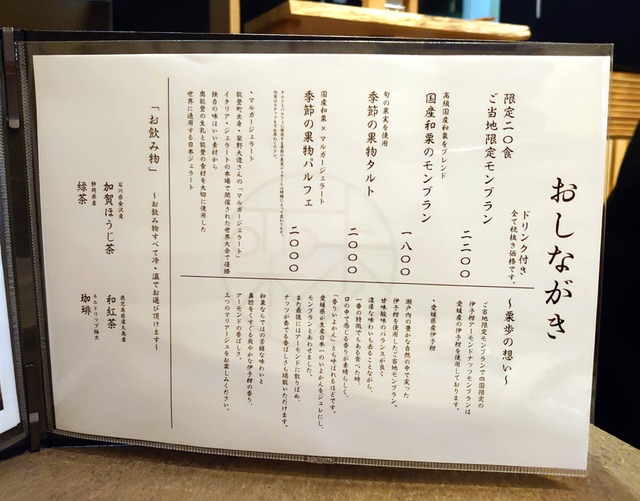 おしながき
ドリンク付き
全て税抜き価格です。
限定二〇食
ご当地限定モンブラン
二二〇〇
高級国産和栗をブレンド
国産和栗のモンブラン
一八〇〇
旬の果実を使用
季節の果物タルト
二〇〇〇
国産和栗×マルガージェラート
季節の果物パルフェ
二〇〇〇
・マルガージェラート
能登町出身・柴野大造さんの「マルガージェラート」
イタリア・ジェラートの本場で開催された世界大会で優勝
独自の味はいい素材から
奥能登の生乳と能登の食材を大切に使用した
世界に通用する日本ジェラート
〜栗歩の想い〜
ご当地限定モンブランで四国限定の
伊予柑アーモンドナッツモンブランは
愛媛産の伊予柑を使用しております。
・愛媛県産伊予柑
瀬戸内の豊かな自然の中で実った
伊予柑を使用したご当地モンブラン。
甘味酸味のバランスが良く
濃密な味わいでもあることながら、
一番の特徴でもある食べた時、
口の中で感じる香りが素晴らしく、
「香りいよかん」とも呼ばれるほどです。
愛媛県が生産日本一のいよかんをジュレにし、
モンブランとあわせました。
また最後にはアーモンドに散りばめ、
ナッツが奏でる香ばしさも堪能いただけます。
和栗ならではの芳醇な味わいと
鼻腔をくすぐる爽やかな伊予柑の香り、
アーモンドの香ばしさ、
三つのマリアージュをお楽しみください。
「お飲み物」
〜お飲み物すべて冷・温でお選び頂けます〜
石川県金沢産
加賀ほうじ茶
鹿児島県徳之島産
和紅茶
静岡県産
緑茶
珈琲